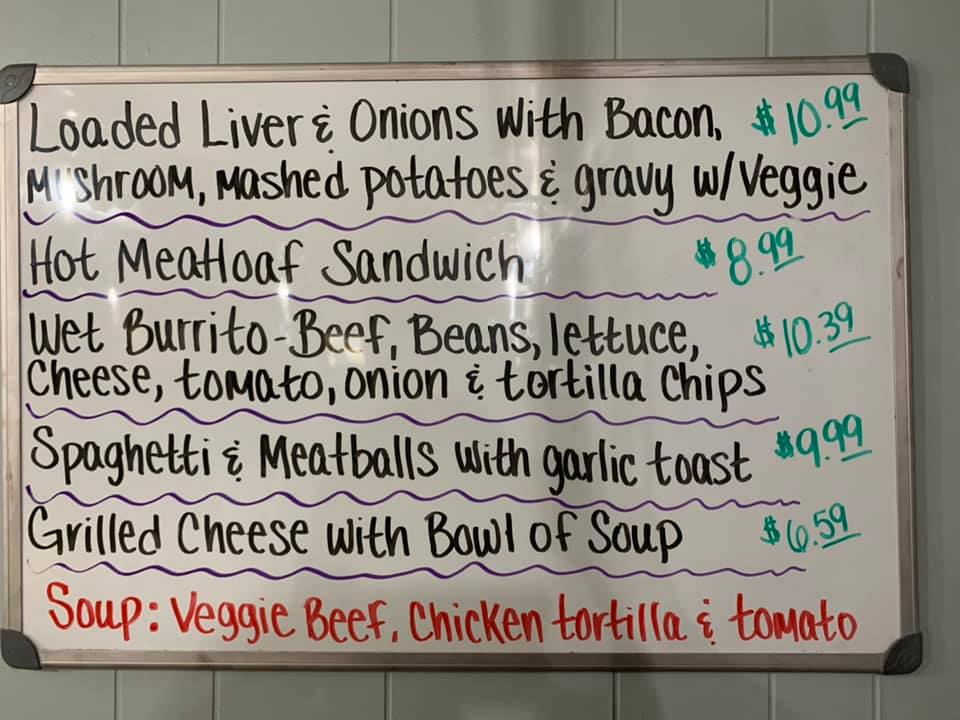 Loaded Liver & Onions with Bacon, $10.99
Mushroom, Mashed potatoes & gravy w/Veggie
Hot Meatloaf Sandwich $8.99
Wet Burrito-Beef, Beans, lettuce, $10.39
Cheese, tomato, onion & tortilla chips
Spaghetti & Meatballs with garlic toast $9.99
Grilled Cheese with Bowl of Soup $6.59
Soup: Veggie Beef, Chicken tortilla & tomato